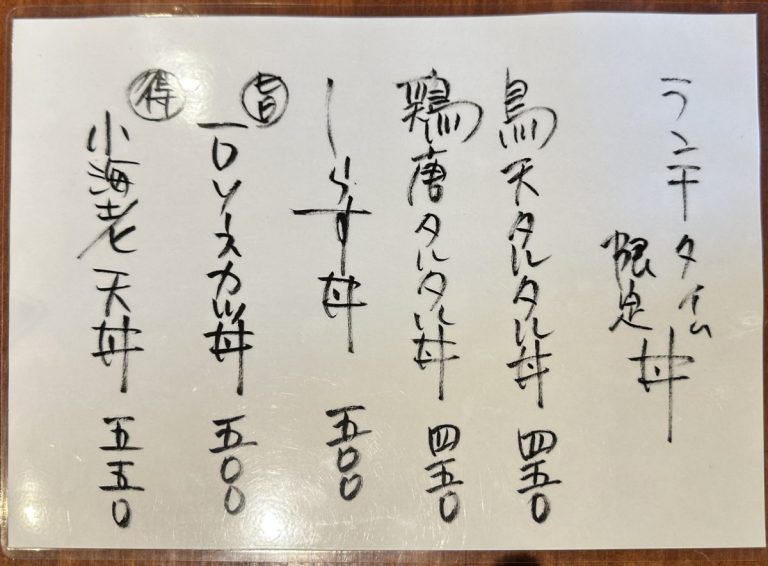 ランチタイム
限定
丼
鳥天タルタル丼 四五〇
鶏唐タルタル丼 四五〇
しらす丼 五〇〇
旨
一口ソースカツ丼 五〇〇
得
小海老天丼 五五〇